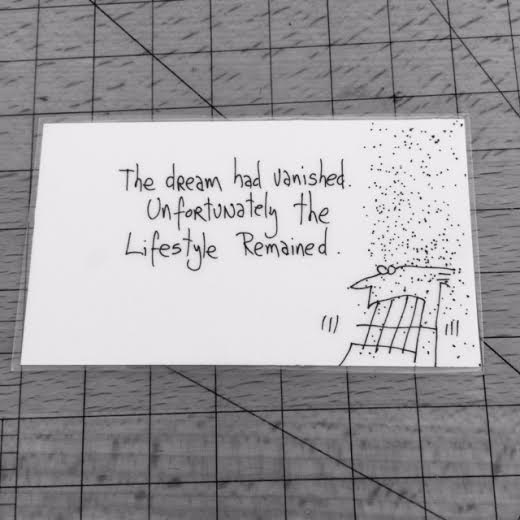 The dream had vanished.
Unfortunately the
Lifestyle Remained.